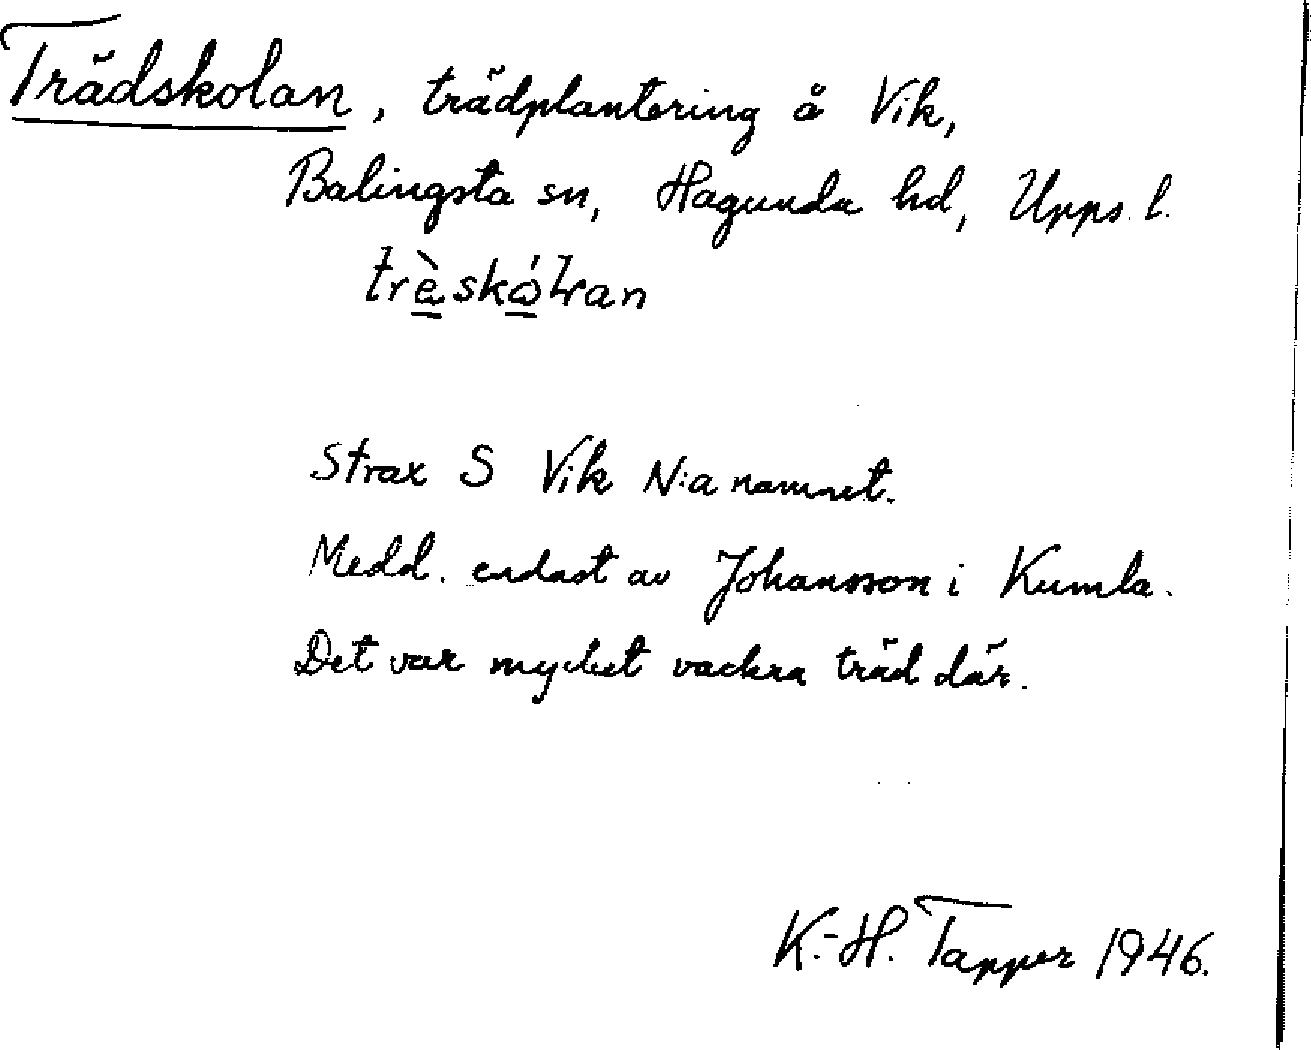 Trädskolan, trädplantering å Vik,
Balingsta sn, Hagunda hd, Upps. l.
trè̲skó̲łran
Strax S Vik N:a namnet.
Medd. endast av Johansson i Kumla.
Det var mycket vackra träd där.
K.-H. Tapper 1946.